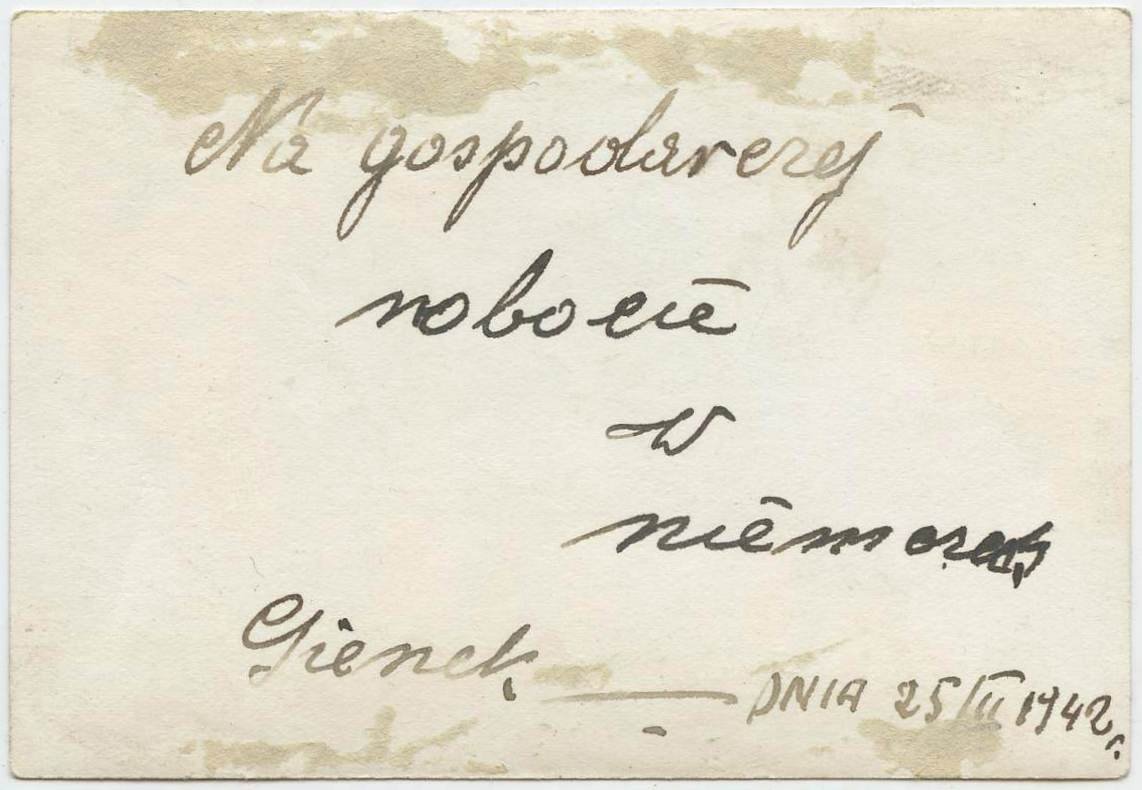 Na gospodarczej
robocie
w
niemczech
Gienek — DNIA 25/III 1942 r.